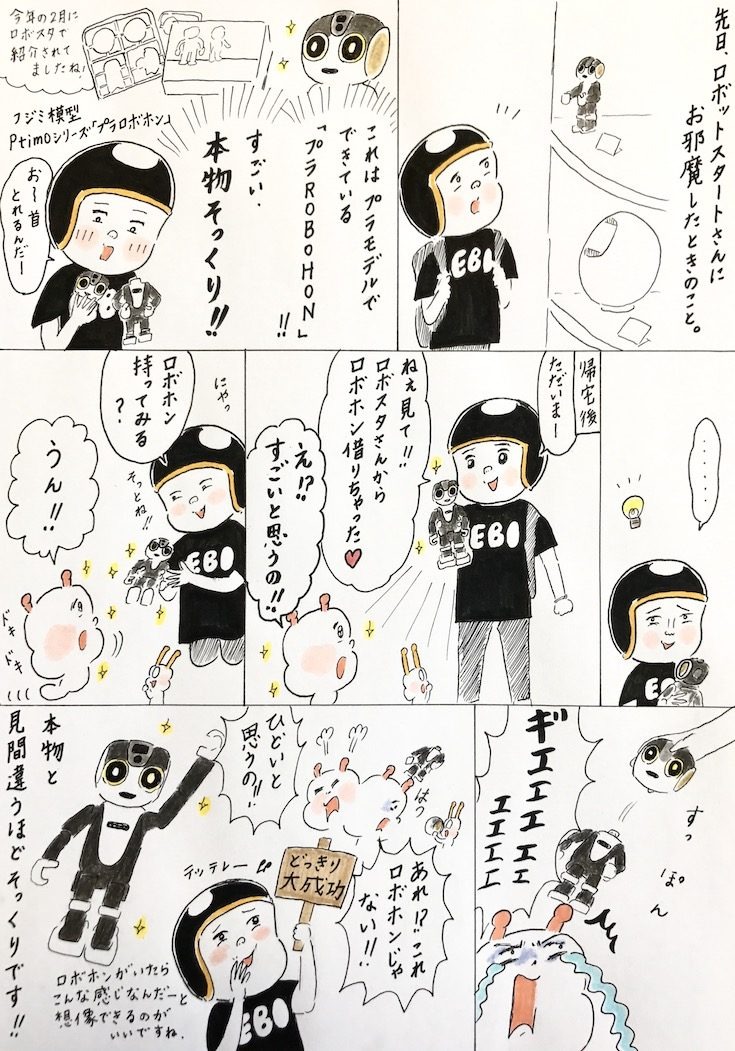 先日、ロボットスタートさんに
お邪魔したときのこと。
EBI
これはプラモデルで
できている
「プラROBOHON」
!!
すごい、
本物そっくり!!
今年の2月に
ロボスタで
紹介されて
ましたね!
フジミ模型
Ptimoシリーズ「プラロボホン」
お〜首
とれるんだー
・・・・・
EB
帰宅後
ただいまー
ねぇ見て!!
ロボスタさんから
ロボホン借りちゃった♥
EBI
え!?
すごいと思うの!!
にやっ
ロボホン
持ってみる
?
そっとね!!
EBI
うん!!
ドキ
ドキ
すっ
ぽん
ギエエエエエ
エエエエ
はっ
あれ!?これ
ロボホンじゃ
ない!!
ひどいと
思うの!!
どっきり
大成功
テッテレー
EBI
本物と
見間違うほどそっくりです!!
ロボホンがいたら
こんな感じなんだーと
想像できるのが
いいですね.